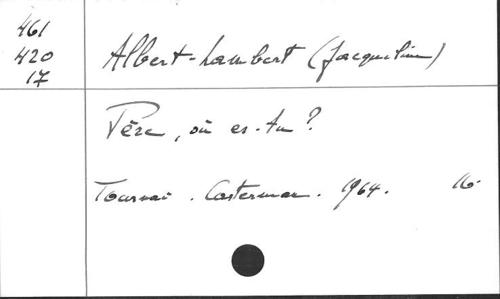 461
420
17
Albert-Lambert (Jacqueline)
Père, où es-tu?
Tournai. Casterman. 1964. 16